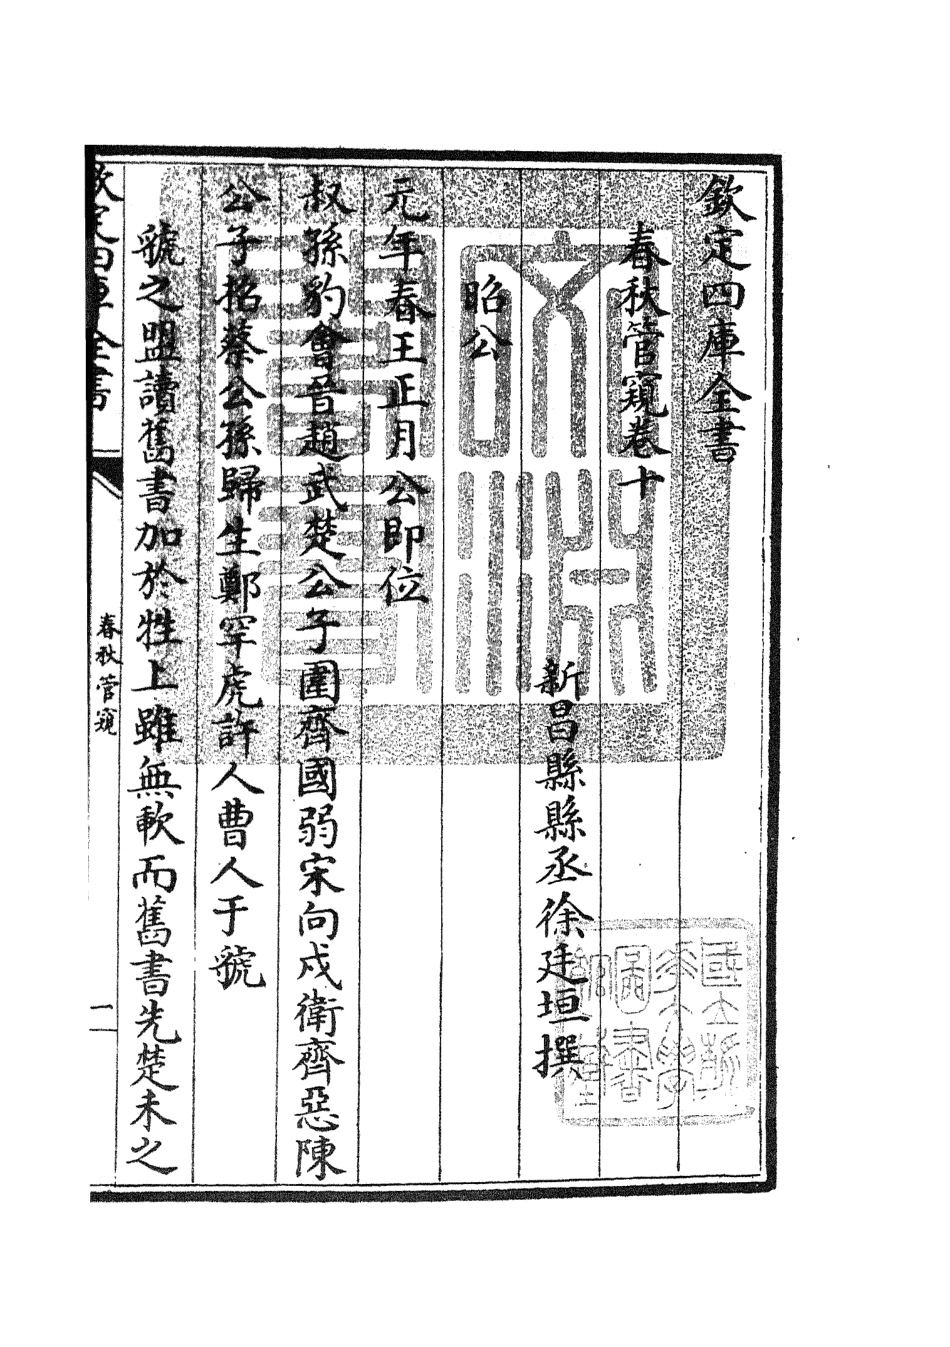 欽定四庫全書
春秋管窺卷十
新昌縣縣丞徐廷垣撰
昭公
元年春王正月公即位
叔孫豹會晉趙武楚公子圍齊國弱宋向戌衛齊惡陳
公子招蔡公孫歸生鄭罕虎許人曹人于虢
虢之盟讀舊書加於牲上雖無軟而舊書先楚未之
欽定四庫全書
春秋管窺
一